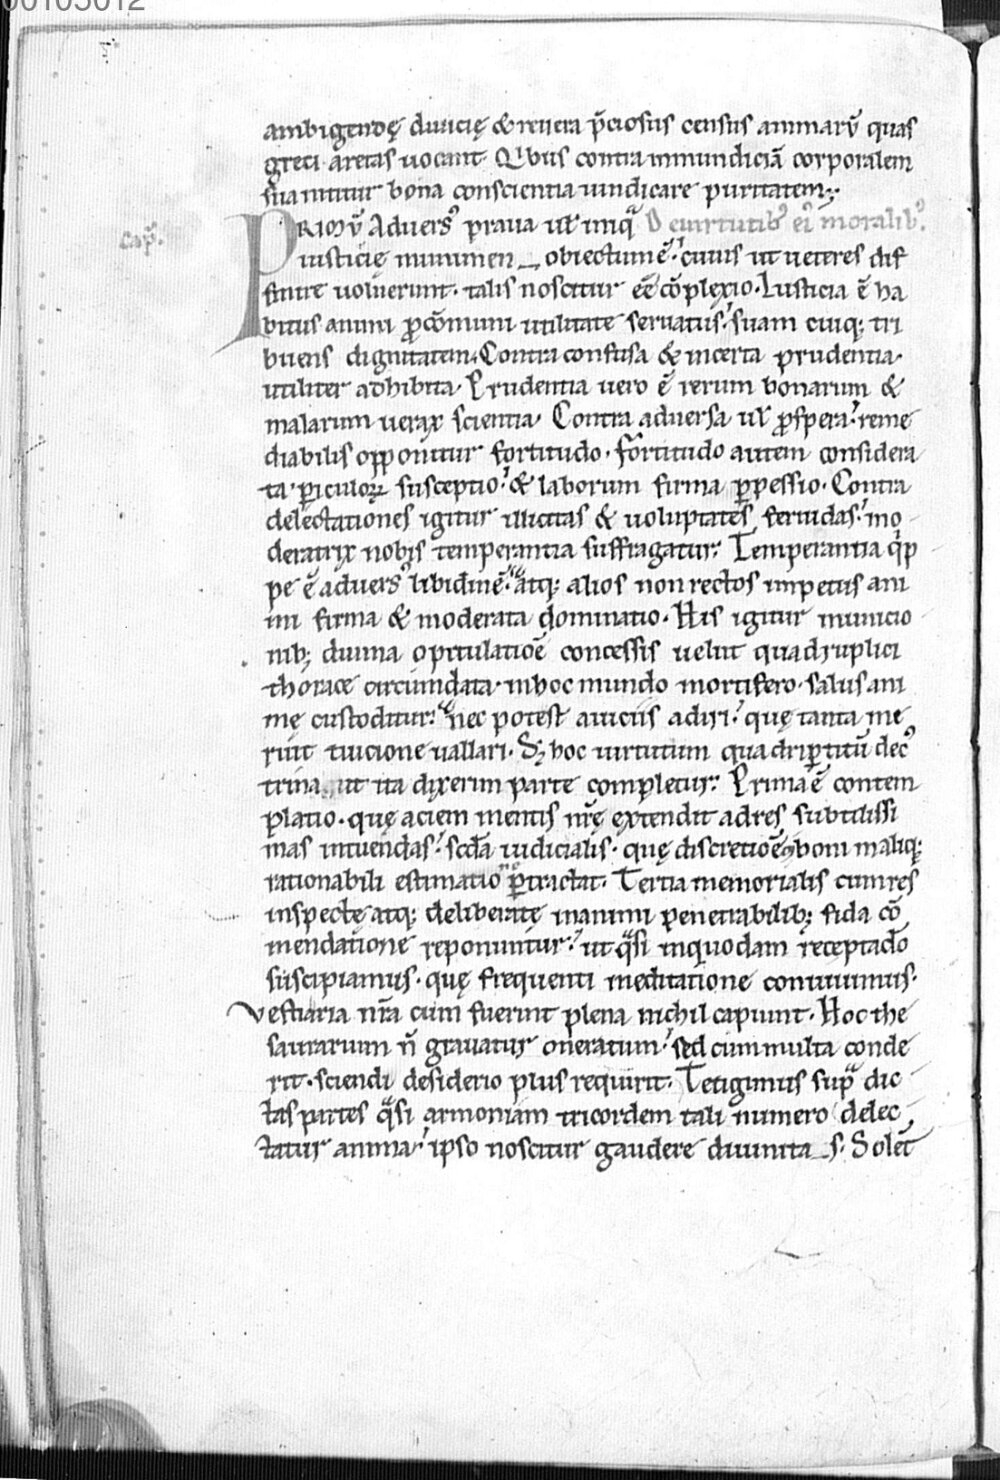 00105012
ambigendę diuicię & reuera p̄ciosus census animarū quas
greci aretas uocant. Qͥbus contra inmundiciā corporalem
sua nititur bona conscientia uindicare puritatem;
De uirtutibꝰ eiꝰ moralibꝰ.
Cap̄.
PRIMV̄ Aduersꝰ praua ul̄ iniqͣ
iusticię munimen obiectum ē. cuius ut ueteres dif
finire uoluerunt. talis noscitur ēē cō̄plexio. Iusticia ē ha
bitus animi ꝓ cō̄muni utilitate seruatus. suam cuiq; tri
buens dignitatem. Contra confusa & incerta prudentia
utiliter adhibita. Prudentia uero ē rerum bonarum &
malarum uerax scientia. Contra aduersa ul̄ ꝓspera. reme
diabilis opponitur fortitudo. fortitudo autem considera
ta ꝑiculoꝝ susceptio. & laborum firma ꝑpessio. Contra
delectationes igitur illicitas & uoluptates feruidas. mo
deratrix nobis temperantia suffragatur. Temperantia qͥp
pe ē aduersꝰ libidinē. atq; alios non rectos impetus ani
mi firma & moderata dominatio. His igitur municio
nib; diuina opitulatiōe concessis uelut quadruplici
thorace circumdata. in hoc mundo mortifero. salus ani
mę custoditur. nec potest a uiciis adiri. quę tanta me
ruit tuicione uallari. Sꝫ hoc uirtutum quadriꝑtitū decꝰ
trina ut ita dixerim parte completur. Prima ē contem
platio. quę aciem mentis nr̄ę extendit ad res subtilissi
mas intuendas. scd̄a iudicialis. quę discretiōē boni maliq;
rationabili estimatio ꝑtractat. Tertia memorialis cum res
inspectę atq; deliberatę in animi penetrabilib; fida cō
mendatione reponuntur. ut qͣsi in quodam receptaclo
suscipiamus. quę frequenti meditatione conuiuimus.
Vestiaria nr̄a cum fuerint plena nichil capiunt. Hoc the
saurarum n̄ grauatur oneratum. sed cum multa conde
rit. sciendi desiderio plus requirit. Tetigimus supͣ dic
tas partes qͣsi armoniam tricordem tali numero delec
tatur anima. ipso noscitur gaudere diuinitas. Solet̄